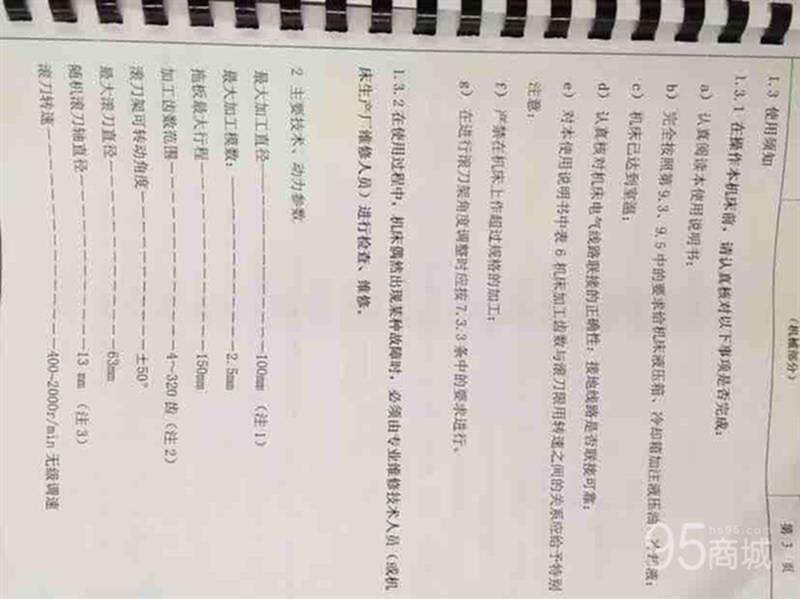 （机械部分）
第 3 页
1.3 使用须知
1.3.1 在操作本机床前，请认真核对以下事项是否完成：
a）认真阅读本使用说明书；
b）完全按照第 9.3、9.5 中的要求给机床液压箱、冷却箱加注液压油、冷却液；
c）机床已达到室温；
d）认真核对机床电气线路联接的正确性；接地线路是否联接可靠；
e）对本使用说明书中表 6 机床加工齿数与滚刀限用转速之间的关系应给予特别
注意；
f）严禁在机床上作超过规格的加工；
g）在进行滚刀架角度调整时应按 7.3.3 条中的要求进行。
1.3.2 在使用过程中，机床偶然出现某种故障时，必须由专业维修技术人员（或机
床生产厂维修人员）进行检查、维修。
2 主要技术、动力参数
最大加工直径——————————100mm（注 1）
最大加工模数：—————————2.5mm
拖板最大行程——————————150mm
加工齿数范围——————————4～320 齿（注 2）
滚刀架可转动角度————————±50°
最大滚刀直径——————————63mm
随机滚刀轴直径—————————13 mm（注 3）
滚刀转速————————————400~2000r/min 无级调速
95商城
bs95.com